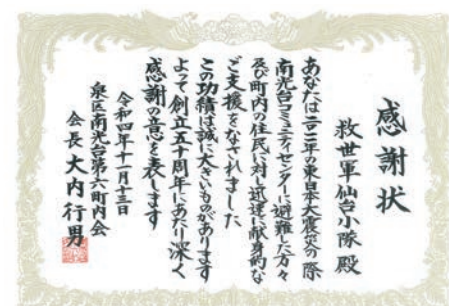 感謝状
救世軍仙台小隊 殿
あなたは二〇一一年の東日本大震災の際
南光台コミュニティセンターに避難した方々
及び町内の住民に対し迅速に献身的な
ご支援をなされました
この功績は誠に大きいものがあります
よって創立五十周年にあたり深く
感謝の意を表します
令和四年十一月十三日
泉区南光台第六町内会
会長 大内行男